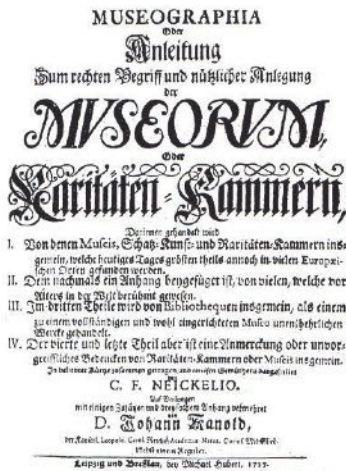 MUSEOGRAPHIA
Oder
Anleitung
Zum rechten Begriff und nützlicher Anlegung
der
MVSEORVM,
Oder
Raritäten-Kammern,
Darinnen gehandelt wird
I. Von denen Museis, Schatz-Kunst- und Raritäten-Kammern ins-
gemein, welche heutiges Tages grösten theils annoch in vielen Europæi-
schen Orten gefunden werden.
II. Dem nachmals ein Anhang beygefüget ist, von vielen, welche vor
Alters in der Welt berühmt gewesen.
III. Im dritten Theile wird von Bibliothequen insgemein, als einem
zu einem vollständigen und wohl eingerichteten Museo unentbehrlichen
Wercke gehandelt.
IV. Der vierte und letzte Theil aber ist eine Anmerckung oder unvor-
greiffliches Bedencken von Raritäten-Kammern oder Museis insgemein.
In beliebter Kürtze zusammen getragen, und curiösen Gemüthern dargestellet
von
C. F. NEICKELIO.
Auf Verlangen
mit einigen Zusätzen und dreyfachem Anhang vermehret
von
D. Johann Kanold,
der Kayserl. Leopold. Carol. Reichs-Academ. Natur. Curios. Mit-Glied.
Leipzig und Breßlau, bey Michael Hubert. 1727.